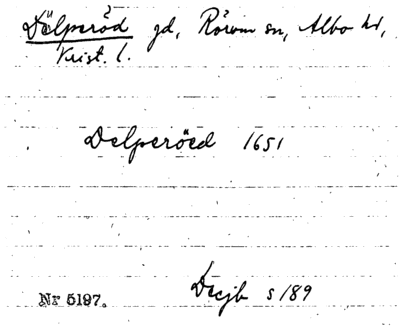 Dälperöd gd, Rörum sn, Albo hd,
Krist. l.
Delperöed 1651
Nr 5197. Dcjb s 189